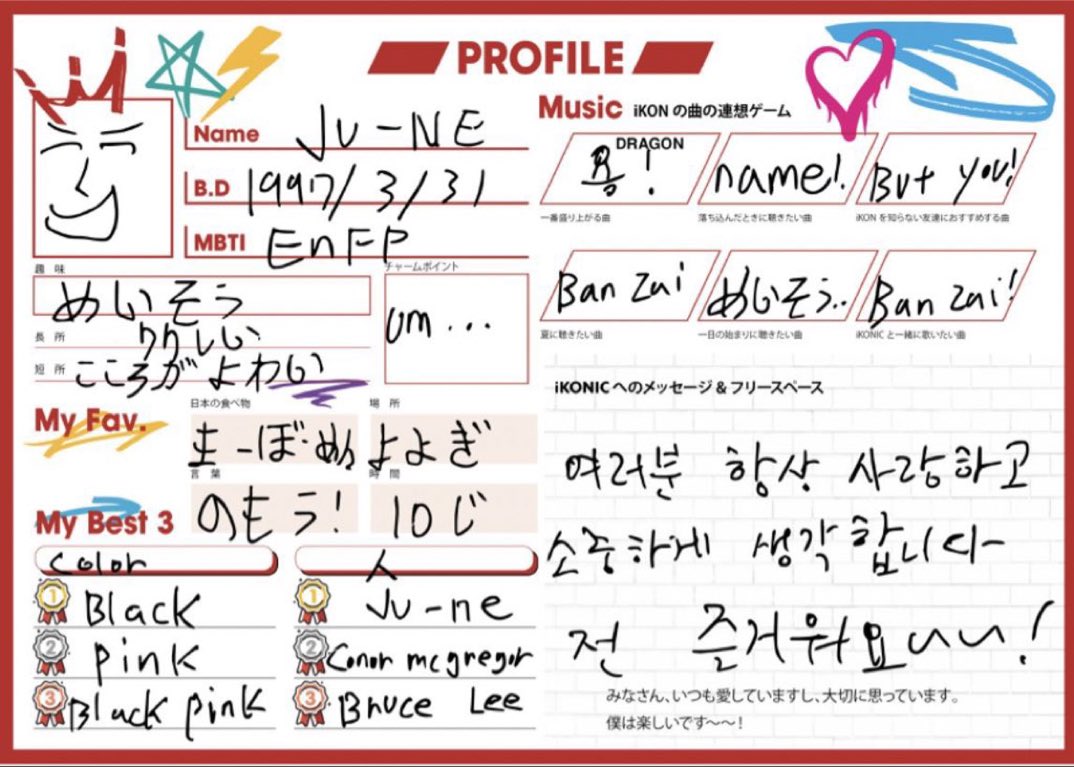 PROFILE
Name JU-NE
B.D 1997/3/31
MBTI EnFP
趣味
めいそう
長所
短所 こころがよわい
チャームポイント
um...
My Fav.
日本の食べ物
場所
よよぎ
言葉
のもう!
時間
10じ
My Best 3
Color
1 Black
2 pink
3 Black pink
人
1 Ju-ne
2 Conor mcgregor
3 Bruce Lee
Music iKONの曲の連想ゲーム
DRAGON
용!
一番盛り上がる曲
name!
落ち込んだときに聴きたい曲
But you!
iKONを知らない友達におすすめする曲
Ban Zai
夏に聴きたい曲
めいそう..
一日の始まりに聴きたい曲
Ban Zai!
iKONICと一緒に歌いたい曲
iKONICへのメッセージ&フリースペース
여러분 항상 사랑하고
소중하게 생각합니다
전 즐거워요ㅆㅆ!
みなさん、いつも愛していますし、大切に思っています。
僕は楽しいです〜〜!